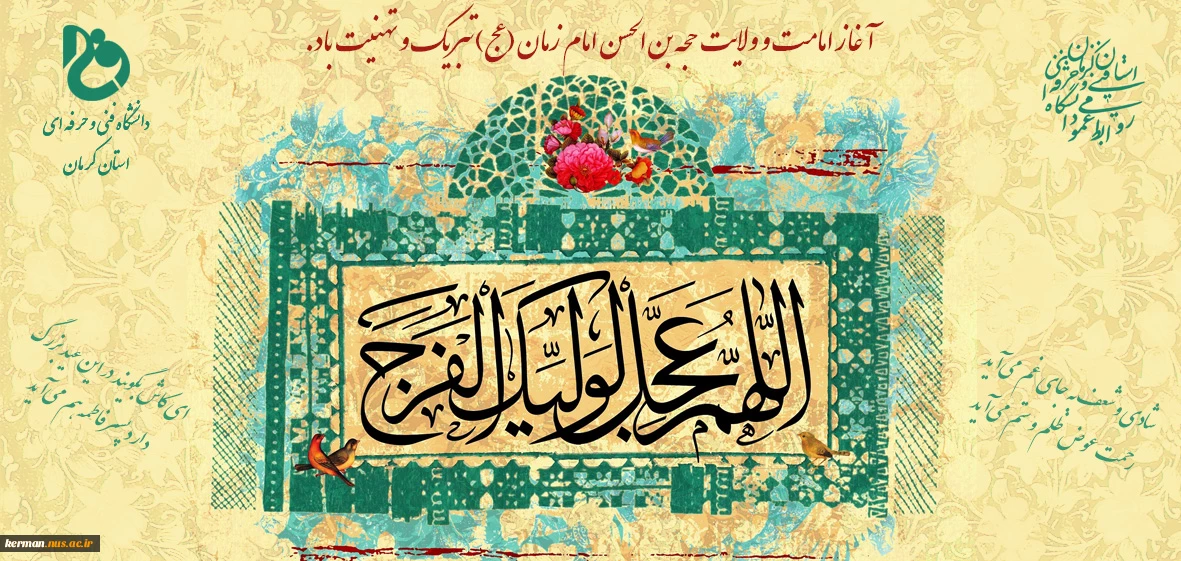 آغاز امامت و ولایت حجه بن الحسن امام زمان (عج) تبریک و تهنیت باد.
دانشگاه فنی و حرفه ای
استان کرمان
استان کرمان
روابط عمومی دانشگاه فنی و حرفه ای
اللَّهُمَّ عَجِّل لِوَلِیِّکَ الفَرَجَ
شادی و شعف به جای غم می آید
رحمت عوض ظلم و ستم می آید
ای کاش بگویند در این عید بزرگ
دارد پسر فاطمه هم می آید
kerman.nus.ac.ir